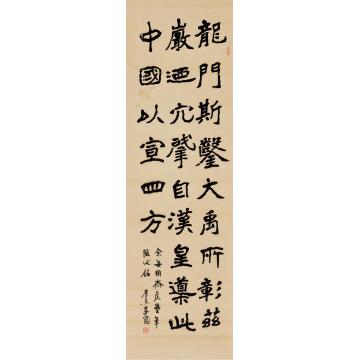 龍門斯鑿大禹所彰茲
巖迺穴肇自漢皇導此
中國以宣四方